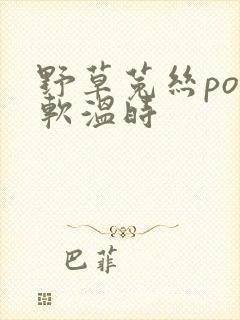 野草菟丝po
軟溫時
巴菲